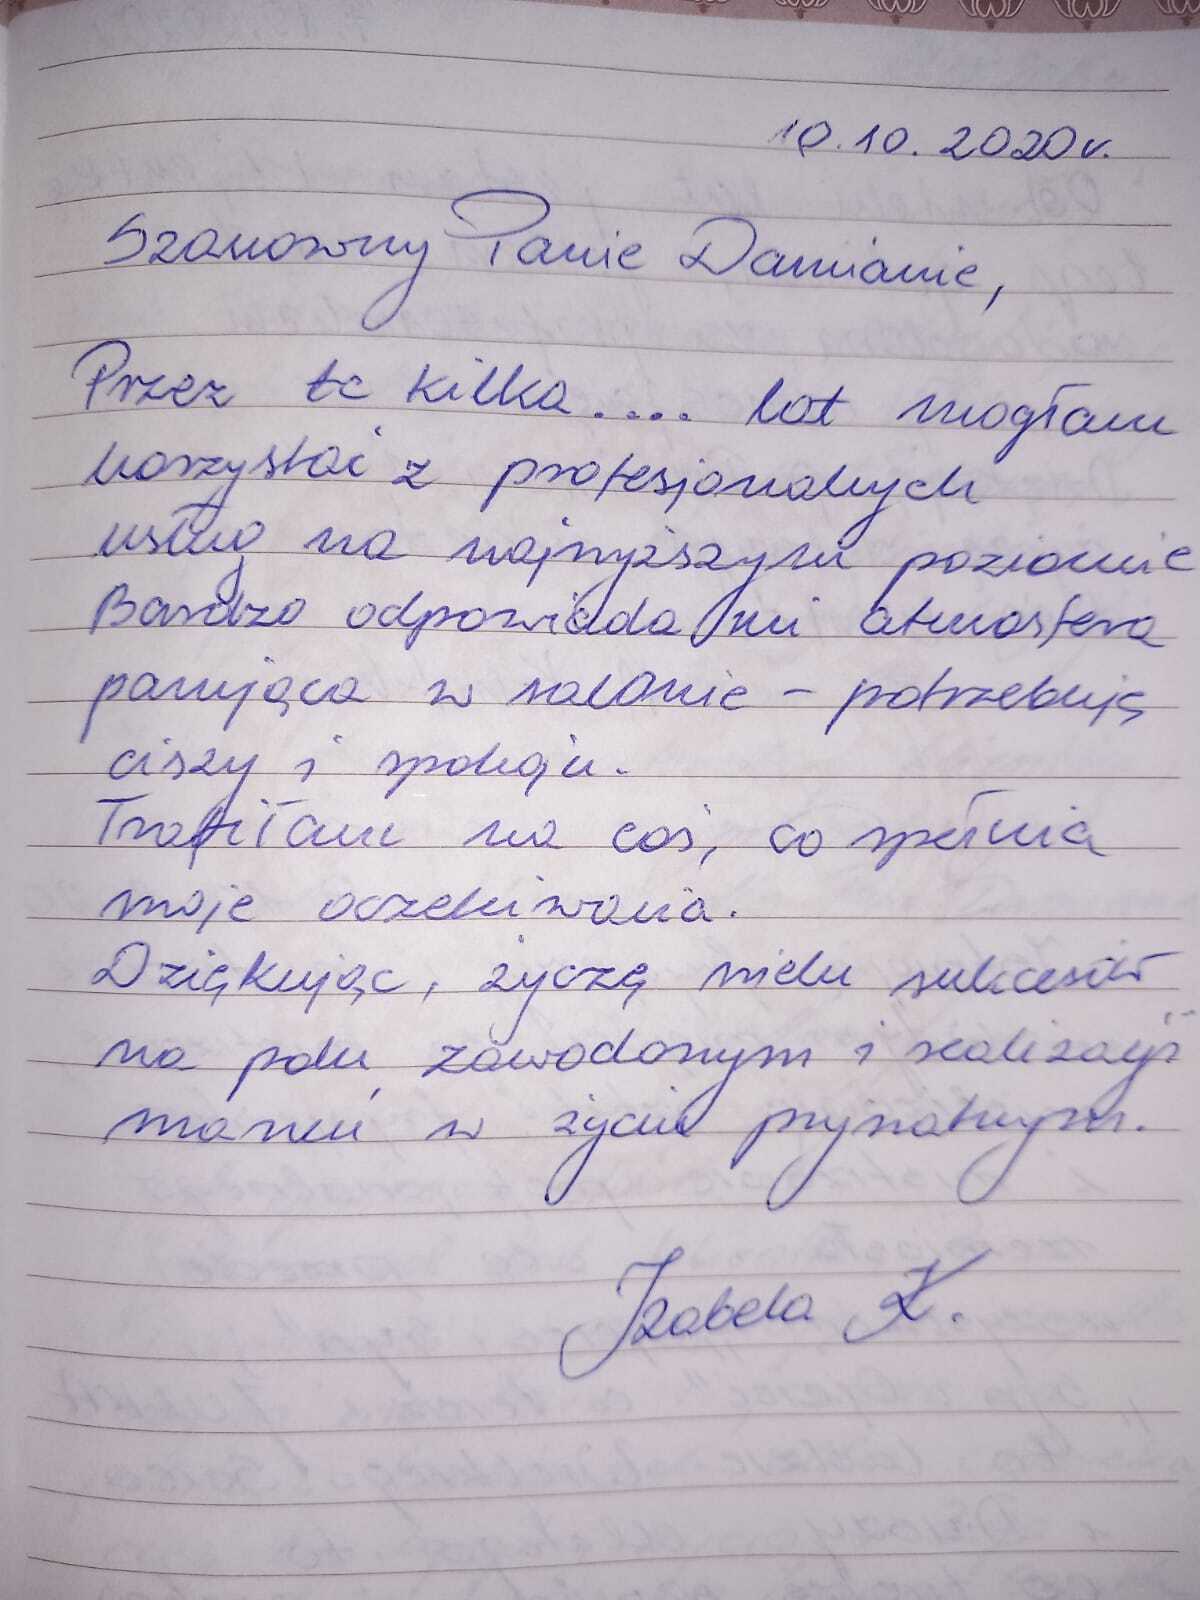 10.10.2020r.
Szanowny Panie Damianie,
Przez te kilka.... lat mogłam
korzystać z profesjonalnych
usług na najwyższym poziomie
Bardzo odpowiada mi atmosfera
panująca w salonie – potrzebuję
ciszy i spokoju.
Trafiłam na coś, co spełnia
moje oczekiwania.
Dziękując, życzę wielu sukcesów
na polu zawodowym i realizacji
marzeń w życiu prywatnym.
Izabela K.